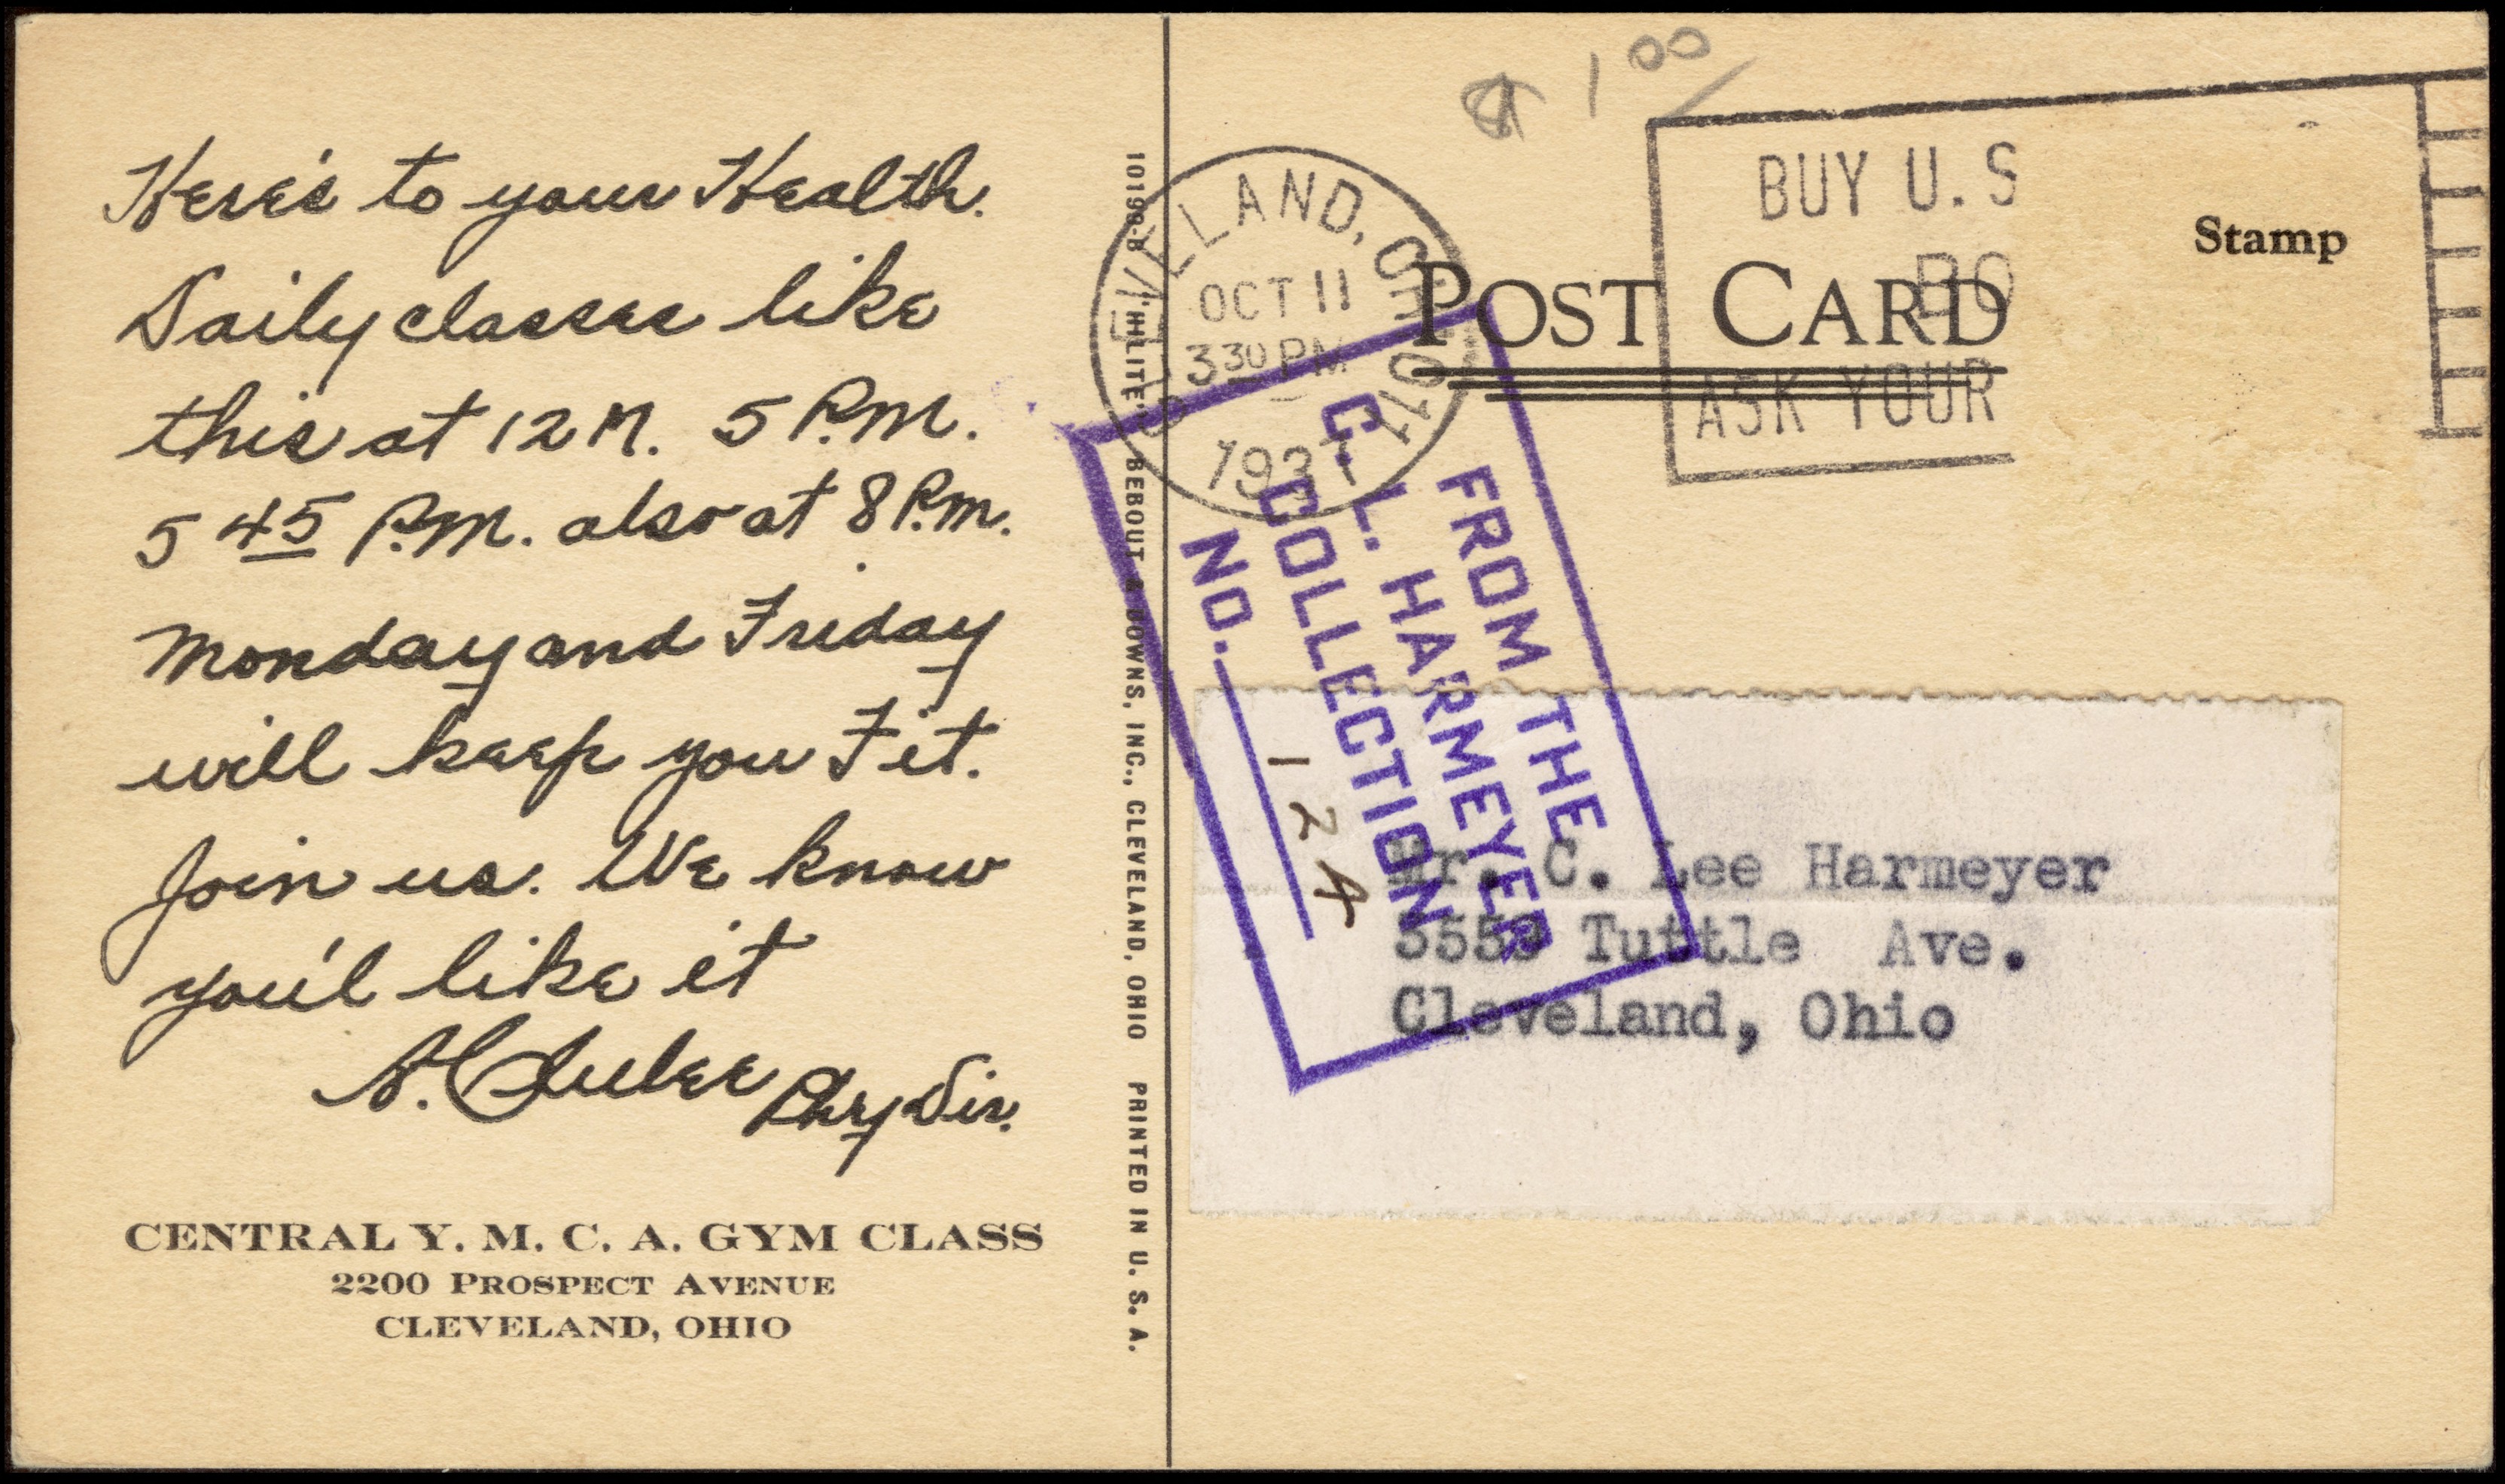 Here's to your Health.
Daily classes like
this at 12 N. 5 P.M.
5 45 P.M. also at 8 P.M.
Monday and Friday
will keep you Fit.
Join us. We know
you'l like it
Phy Dir.
CENTRAL Y. M. C. A. GYM CLASS
2200 PROSPECT AVENUE
CLEVELAND, OHIO
10198-B "HILITE" BEBOUT & DOWNS, INC., CLEVELAND, OHIO PRINTED IN U. S. A.
$ 1 00/
CLEVELAND, OHIO
OCT 11
3 30 PM
1937
BUY U. S
BO
ASK YOUR
Stamp
POST CARD
FROM THE
C. L. HARMEYER
COLLECTION
NO. 124
Mr. C. Lee Harmeyer
3559 Tuttle Ave.
Cleveland, Ohio